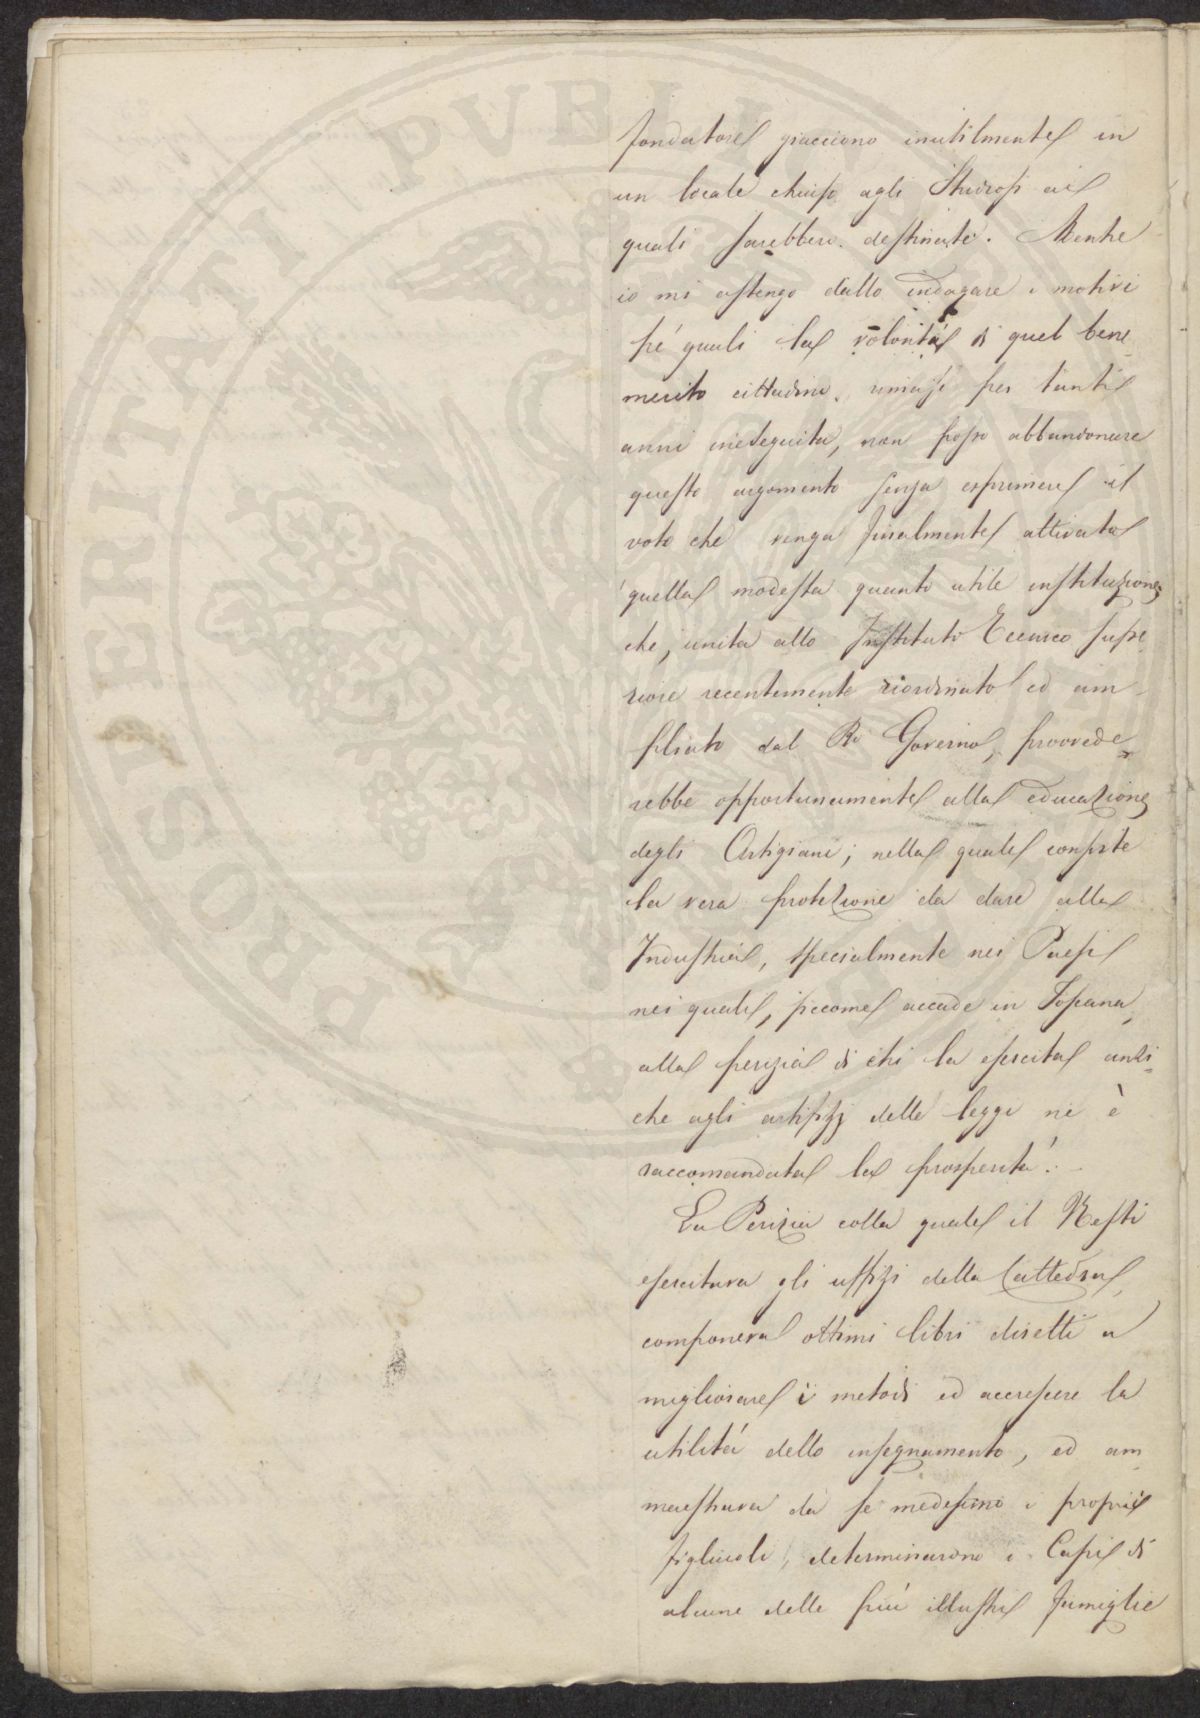 fondatore giacciono inutilmente in
un locale chiuso agli Studiosi ai
quali sarebbero destinate. Mentre
io mi astengo dallo indagare i motivi
pe' quali la volontà di quel bene
merito cittadino, rimase per tanti
anni ineseguita, non posso abbandonare
questo argomento senza esprimere il
voto che venga finalmente attivata
quella modesta quanto utile instituzione
che, unita allo Instituto Tecnico Supe
riore recentemente riordinato ed am-
pliato dal Rº Governo, provvede=
rebbe opportunamente alla educazione
degli Artigiani; nella quale consiste
la vera protezione da dare alla
Industria, specialmente nei Paesi
nei quali, siccome accade in Toscana,
alla perizia di chi la esercita anzi=
che agli artifizj delle leggi ne è
raccomandata la prosperità.
La Perizia colla quale il Nesti
esercitava gli uffizi della Cattedra,
componeva ottimi libri diretti a
migliorare i metodi ed accrescere la
utilità dello insegnamento, ed am
maestrava da se medesimo i proprii
figliuoli, determinarono i Capi di
alcune delle più illustri famiglie
PVBLI